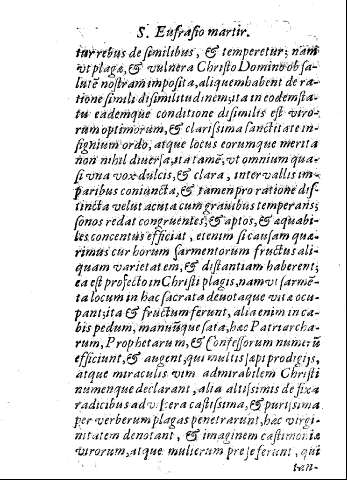 S. Eufrasio martir.
tur rebus de similibus, & temperetur; nam
vt plagæ, & vulnera Christo Domino ob sa-
lutē nostram imposita, aliquem habent de ra-
tione simili disimilitudinem; ita in eodem sta-
tu eademque conditione disimilis est viro-
rum optimorum, & clarissima sanctitate in-
signium ordo, atque locus eorumque merita
non nihil diuersa, ita tamē, vt omnium qua-
si vna vox dulcis, & clara, interuallis im-
paribus coniuncta, & tamen pro ratione dis-
tincta velut acuta cum grauibus temperans;
sonos redat congruentes, & aptos, & aquabi-
les concentus efficiat, etenim si causam quæ-
rimus cur horum sarmentorum fructus ali-
quam varietatem, & distantiam haberent;
ea est profecto in Christi plagis, nam vt sarmē-
ta locum in hac sacrata deuotaque vitæ ocu-
pant; ita & fructum ferunt, alia enim in ca-
bis pedum, manuūque sata, hæc Patriarcha-
rum, Prophetarum, & Confessorum numerū
efficiunt, & augent, qui multis sæpi prodigijs,
atque miraculis vim admirabilem Christi
numenque declarant, alia altissimis de fixa
radicibus ad viscera castissima, & purissima
per verberum plagas penetrarunt, hæc virgi-
nitatem denotant, & imaginem castimoniæ
virorum, atque mulierum præ se ferunt, qui
tan-